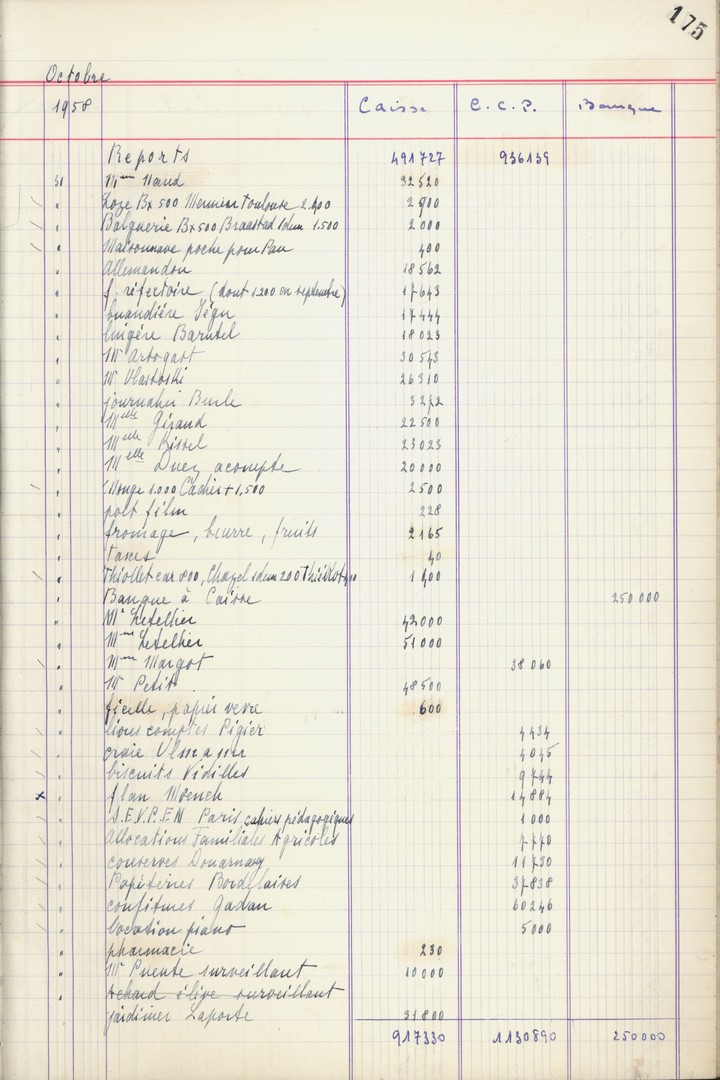 175
Octobre
1958 Caisse C.C.P. Banque
Reports 491727 936139
31 Mme Nand 32520
" Loze Bx 500 Meunier Toulouse 2.400 2900
" Balguerie Bx 500 Braastad idem 1.500 2000
" Maisonnave poche pour Pau 400
" Allemandou 18562
" f. réfectoire (dont 1200 en septembre) 17643
" buandière Ségu 17444
" lingère Barutel 18023
" Mr Arbogast 30543
" Mr Vlastoski 26310
" journalier Burle 3272
" Melle Giraud 22500
" Melle Rissel 23023
" Melle Ducz acompte 20000
" Monge 1.000 Cachier + 1,500 2500
" port film 228
" fromage, beurre, fruits 2165
" taxes 40
" Thiollet car 800, Chazel idem 200 1400
" Banque à Caisse 250000
" Mr Letellier 42000
" Mme Letellier 51000
" Mme Margot 38060
" Mr Petit 48500
" ficelle, papier verre 600
" livres comptes Pigier 4434
" craie Ulmann 4045
" biscuits Vidilles 9744
x " flan Moench 14884
" S.E.V.P.E.N Paris cahiers pédagogiques 1000
" Allocations Familiales Agricoles 7770
" conserves Douarnay 11730
" Papéteries Bordelaises 37838
" confitures Gadan 60246
" location piano 5000
" pharmacie 230
" Mr Puente surveillant 10000
" Achard élève surveillant
jardinier Laporte 31800
917330 1130890 250000